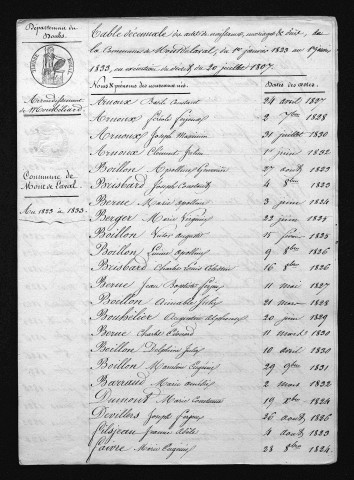 Département du
Doubs.
Arrondissement
de Montbéliard
Commune de
Mont de Laval.
An 1823 à 1833.
Table décennale des actes de naissance, mariages & décès, de
la Commune de Montdelaval, du 1er janvier 1823 au 1er janvier
1833, en exécution du décret du 20 juillet 1807.
Noms & prénoms des nouveaux nés. Dates des actes.
Arnoux 24 avril 1827
Arnoux 2 7bre 1828
Arnoux Joseph 31 juillet 1830
Arnoux Clément Julien 1er juin 1832
Boillon Apolline 27 août 1823
Bresbard Joseph 4 8bre 1823
Berne Marie Apolline 3 juin 1824
Berger Marie 22 juin 1825
Boillon Victor Auguste 15 1825
Boillon Louise Apolline 9 8bre 1826
Bresbard Charles Louis 16 8bre 1826
Berne Jean Baptiste 11 mai 1827
Boillon Aimable Jules 21 mars 1828
Bouhélier Augustin Alphonse 20 juin 1829
Berne Charles Edouard 11 mars 1830
Boillon Delphine Julie 10 avril 1830
Boillon 29 9bre 1831
Bavaud Marie 2 mars 1832
Dumont Marie Constance 19 Xbre 1824
Devillers Joseph 26 août 1826
Filsjean Jeanne Adèle 4 août 1823
Faivre Marie Eugénie 28 8bre 1824